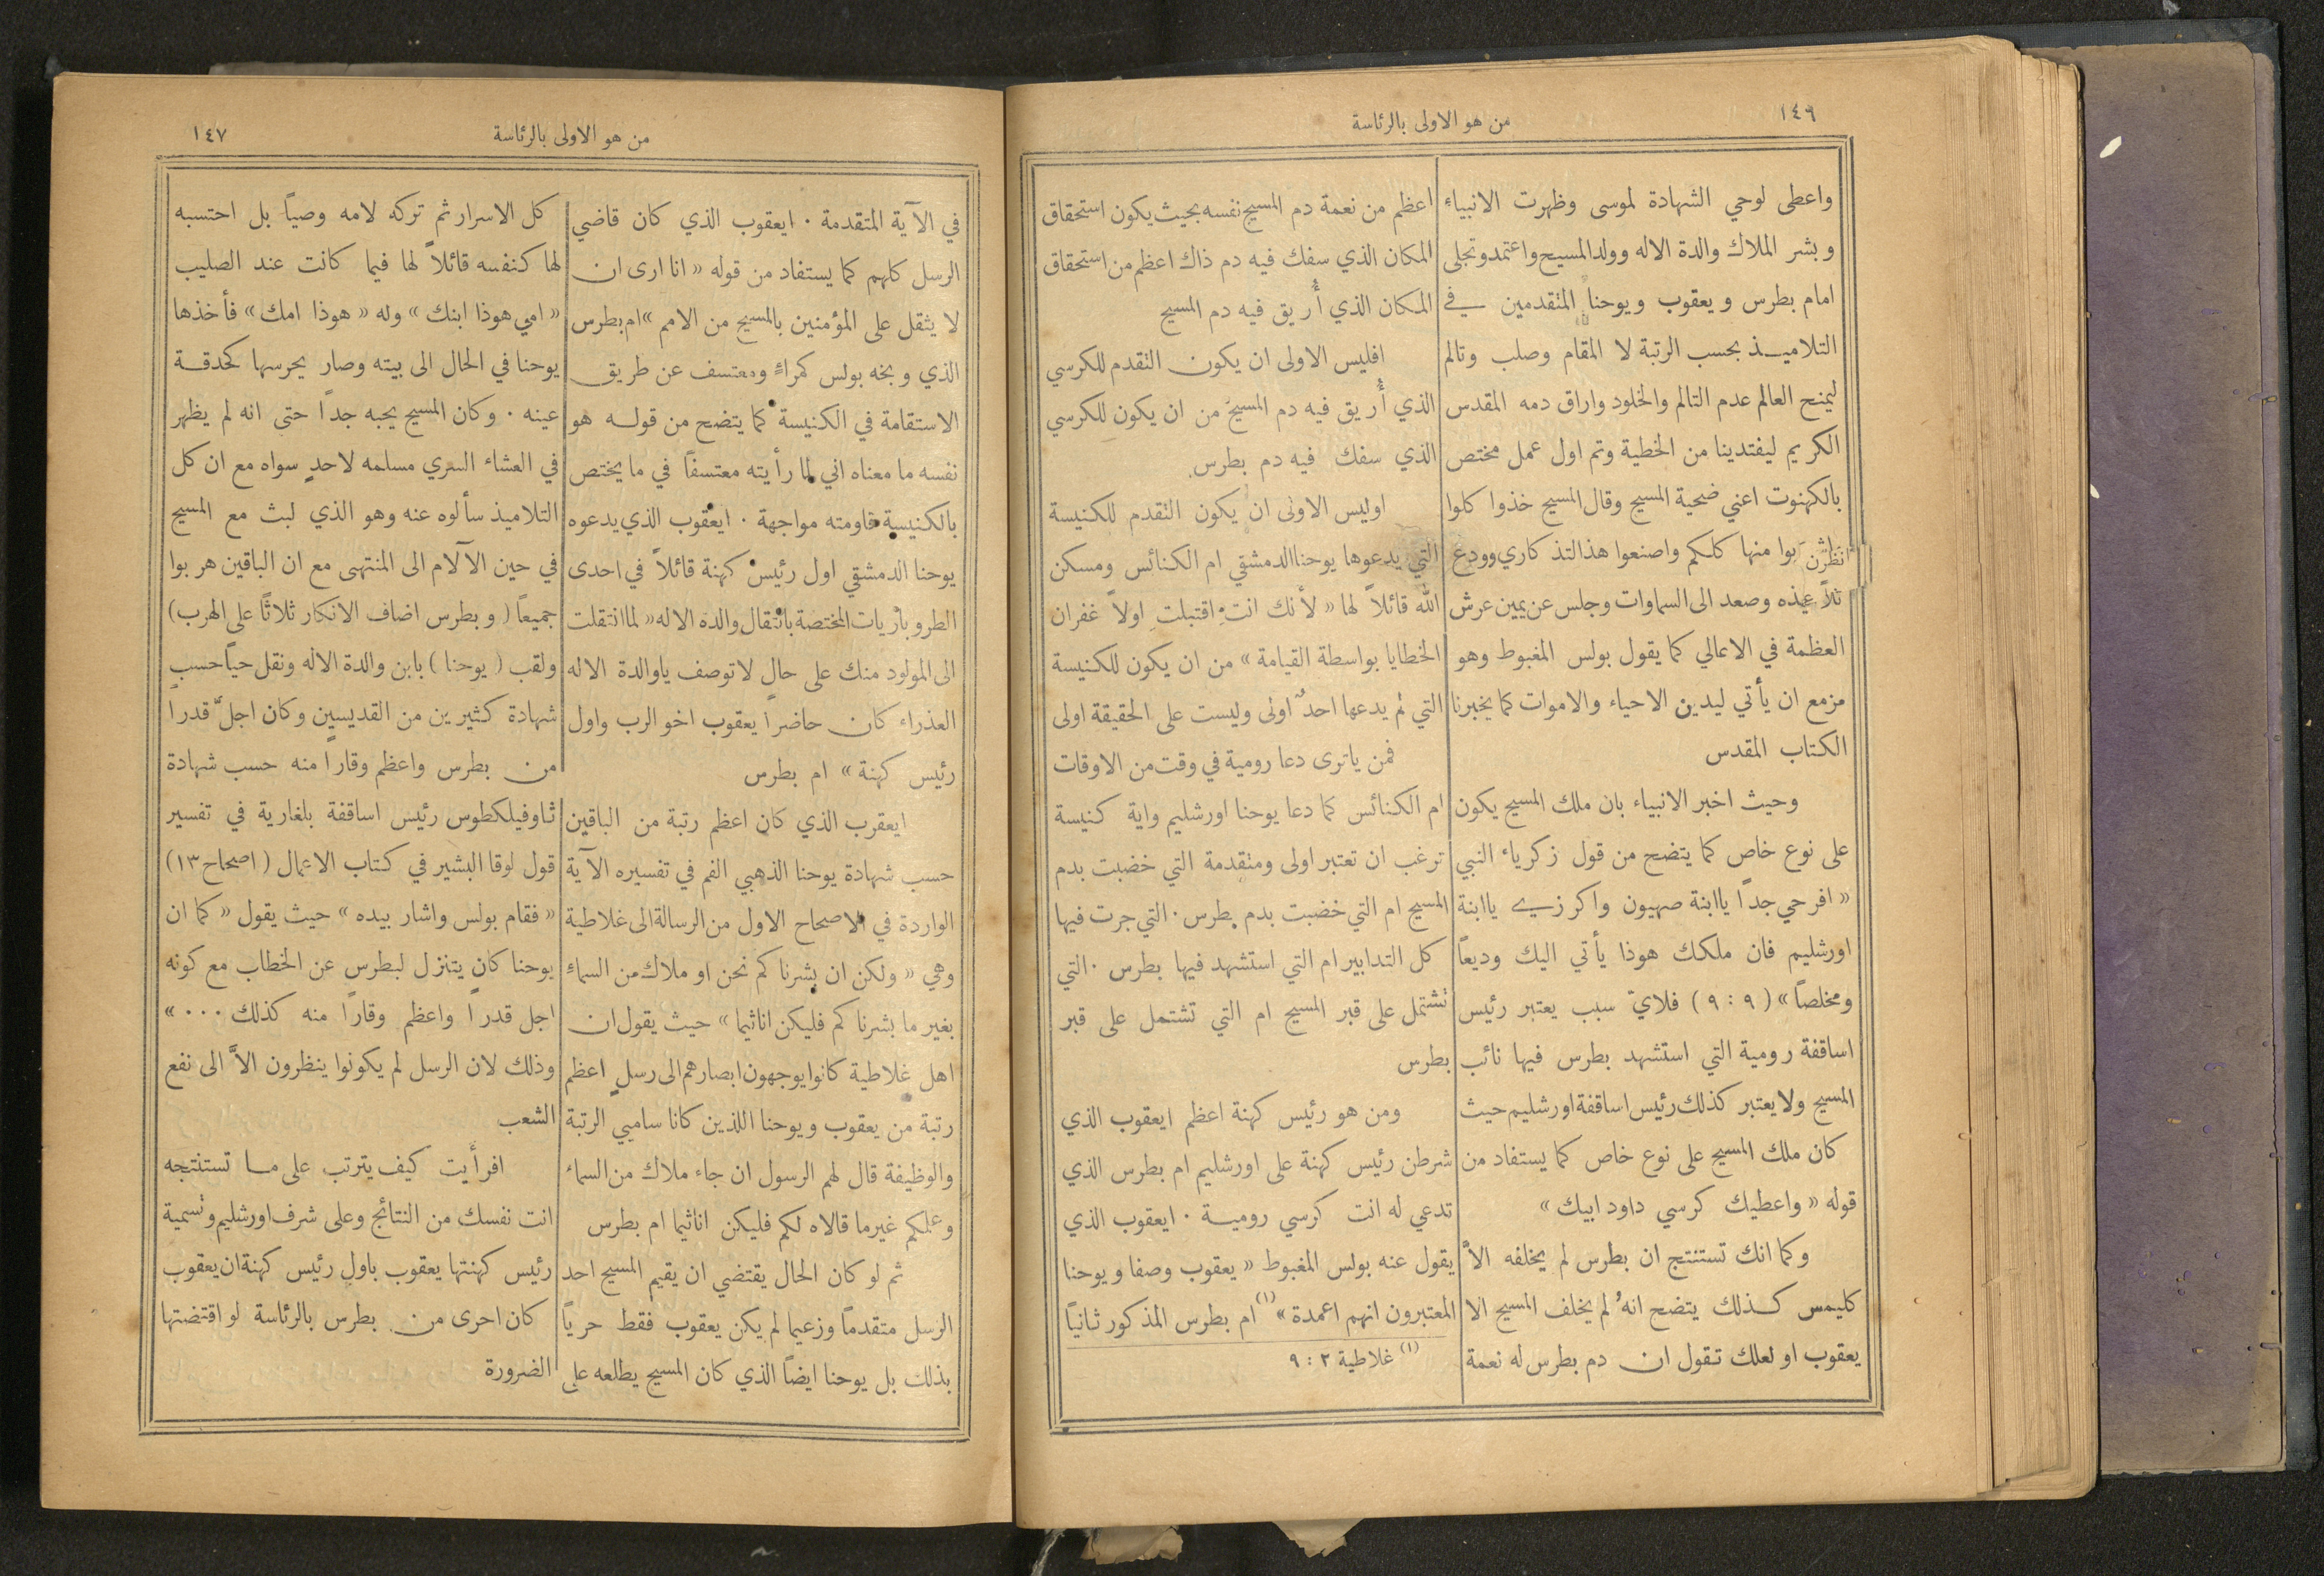 ١٤٦
من هو الاولى بالرئاسة
واعطى لوحي الشهادة لموسى وظهرت الانبياء
وبشر الملاك والدة الاله وولد المسيح واعتمد وتجلى
امام بطرس ويعقوب ويوحنا المتقدمين في
التلاميذ بحسب الرتبة لا المقام وصلب وتالم
ليمنح العالم عدم التالم والخلود واراق دمه المقدس
الكريم ليفتدينا من الخطية وتم اول عمل مختص
بالكهنوت اعني ضحية المسيح وقال المسيح خذوا كلوا
اشربوا منها كلكم واصنعوا هذا لتذكاري وودع
تلاميذه وصعد الى السماوات وجلس عن يمين عرش
العظمة في الاعالي كما يقول بولس المغبوط وهو
مزمع ان يأتي ليدين الاحياء والاموات كما يخبرنا
الكتاب المقدس
وحيث اخبر الانبياء بان ملك المسيح يكون
على نوع خاص كما يتضح من قول زكرياء النبي
« افرحي جدًا ياابنة صهيون واكرزي ياابنة
اورشليم فان ملكك هوذا يأتي اليك وديعًا
ومخلصًا » (٩ : ٩) فلايّ سبب يعتبر رئيس
اساقفة رومية التي استشهد بطرس فيها نائب
المسيح ولا يعتبر كذلك رئيس اساقفة اورشليم حيث
كان ملك المسيح على نوع خاص كما يستفاد من
قوله « واعطيك كرسي داود ابيك »
وكما انك تستنتج ان بطرس لم يخلفه الاَّ
كليمس كذلك يتضح انهُ لم يخلف المسيح الا
يعقوب او لعلك تقول ان دم بطرس له نعمة
اعظم من نعمة دم المسيح نفسه بحيث يكون استحقاق
المكان الذي سفك فيه دم ذاك اعظم من استحقاق
المكان الذي أُريق فيه دم المسيح
افليس الاولى ان يكون التقدم للكرسي
الذي أُريق فيه دم المسيح من ان يكون للكرسي
الذي سفك فيه دم بطرس
اوليس الاولى ان يكون التقدم للكنيسة
التي يدعوها يوحنا الدمشقي ام الكنائس ومسكن
الله قائلاً لها « لأنك انتِ اقتبلتِ اولاً غفران
الخطايا بواسطة القيامة » من ان يكون للكنيسة
التي لم يدعها احدٌ اولى وليست على الحقيقة اولى
فمن ياترى دعا رومية في وقت من الاوقات
ام الكنائس كما دعا يوحنا اورشليم واية كنيسة
ترغب ان تعتبر اولى ومتقدمة التي خضبت بدم
المسيح ام التي خضبت بدم بطرس · التي جرت فيها
كل التدابير ام التي استشهد فيها بطرس · التي
تشتمل على قبر المسيح ام التي تشتمل على قبر
بطرس
ومن هو رئيس كهنة اعظم ايعقوب الذي
شرطن رئيس كهنة على اورشليم ام بطرس الذي
تدعي له انت كرسي رومية · ايعقوب الذي
يقول عنه بولس المغبوط « يعقوب وصفا ويوحنا
المعتبرون انهم اعمدة »(١) ام بطرس المذكور ثانيًا
(١) غلاطية ٢ : ٩
من هو الاولى بالرئاسة
١٤٧
في الآية المتقدمة · ايعقوب الذي كان قاضي
الرسل كلهم كما يستفاد من قوله « انا ارى ان
لا يثقل على المؤمنين بالمسيح من الامم » ام بطرس
الذي وبخه بولس كمراءٍ ومعتسف عن طريق
الاستقامة في الكنيسة كما يتضح من قوله هو
نفسه ما معناه اني لما رأيته معتسفًا في ما يختص
بالكنيسة قاومته مواجهة · ايعقوب الذي يدعوه
يوحنا الدمشقي اول رئيس كهنة قائلاً في احدى
الطروباريات المختصة بانتقال والدة الاله « لما انتقلت
الى المولود منك على حالٍ لا توصف ياوالدة الاله
العذراء كان حاضرًا يعقوب اخو الرب واول
رئيس كهنة » ام بطرس
ايعقرب الذي كان اعظم رتبة من الباقين
حسب شهادة يوحنا الذهبي الفم في تفسيره الآية
الواردة في الاصحاح الاول من الرسالة الى غلاطية
وهي « ولكن ان بشرناكم نحن او ملاك من السماءِ
بغير ما بشرناكم فليكن اناثيما » حيث يقول ان
اهل غلاطية كانوا يوجهون ابصارهم الى رسلٍ اعظم
رتبة من يعقوب ويوحنا اللذين كانا ساميي الرتبة
والوظيفة قال لهم الرسول ان جاء ملاك من السماء
وعلمكم غير ما قالاه لكم فليكن اناثيما ام بطرس
ثم لو كان الحال يقتضي ان يقيم المسيح احد
الرسل متقدمًا وزعيما لم يكن يعقوب فقط حريًا
بذلك بل يوحنا ايضًا الذي كان المسيح يطلعه على
كل الاسرار ثم تركه لامه وصيًا بل احتسبه
لها كنفسه قائلاً لها فيما كانت عند الصليب
« امي هوذا ابنك » وله « هوذا امك » فأخذها
يوحنا في الحال الى بيته وصار يحرسها كحدقة
عينه · وكان المسيح يحبه جدًا حتى انه لم يظهر
في العشاء السري مسلمه لاحدٍ سواه مع ان كل
التلاميذ سألوه عنه وهو الذي لبث مع المسيح
في حين الآلام الى المنتهى مع ان الباقين هربوا
جميعًا (وبطرس اضاف الانكار ثلاثًا على الهرب)
ولقب (يوحنا) بابن والدة الاله ونقل حيًا حسب
شهادة كثيرين من القديسين وكان اجلَّ قدرًا
من بطرس واعظم وقارًا منه حسب شهادة
ثاوفيلكطوس رئيس اساقفة بلغارية في تفسير
قول لوقا البشير في كتاب الاعمال (اصحاح ١٣)
« فقام بولس واشار بيده » حيث يقول « كما ان
يوحنا كان يتنزل لبطرس عن الخطاب مع كونه
اجل قدرًا واعظم وقارًا منه كذلك ··· »
وذلك لان الرسل لم يكونوا ينظرون الاَّ الى نفع
الشعب
افرأيت كيف يترتب على ما تستنتجه
انت نفسك من النتائج وعلى شرف اورشليم وتسمية
رئيس كهنتها يعقوب باول رئيس كهنة ان يعقوب
كان احرى من بطرس بالرئاسة لو اقتضتها
الضرورة